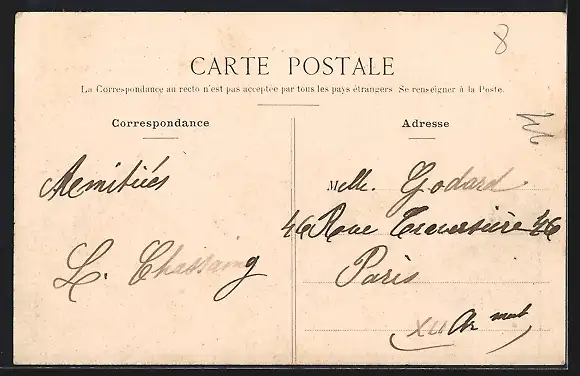 8
CARTE POSTALE
La Correspondance au recto n'est pas acceptée par tous les pays étrangers Se renseigner à la Poste.
Correspondance
Adresse
46
Amitiés
L. Chassaing
Melle. Godard
46 Rue Traversière 46
Paris
XII Ar mnt